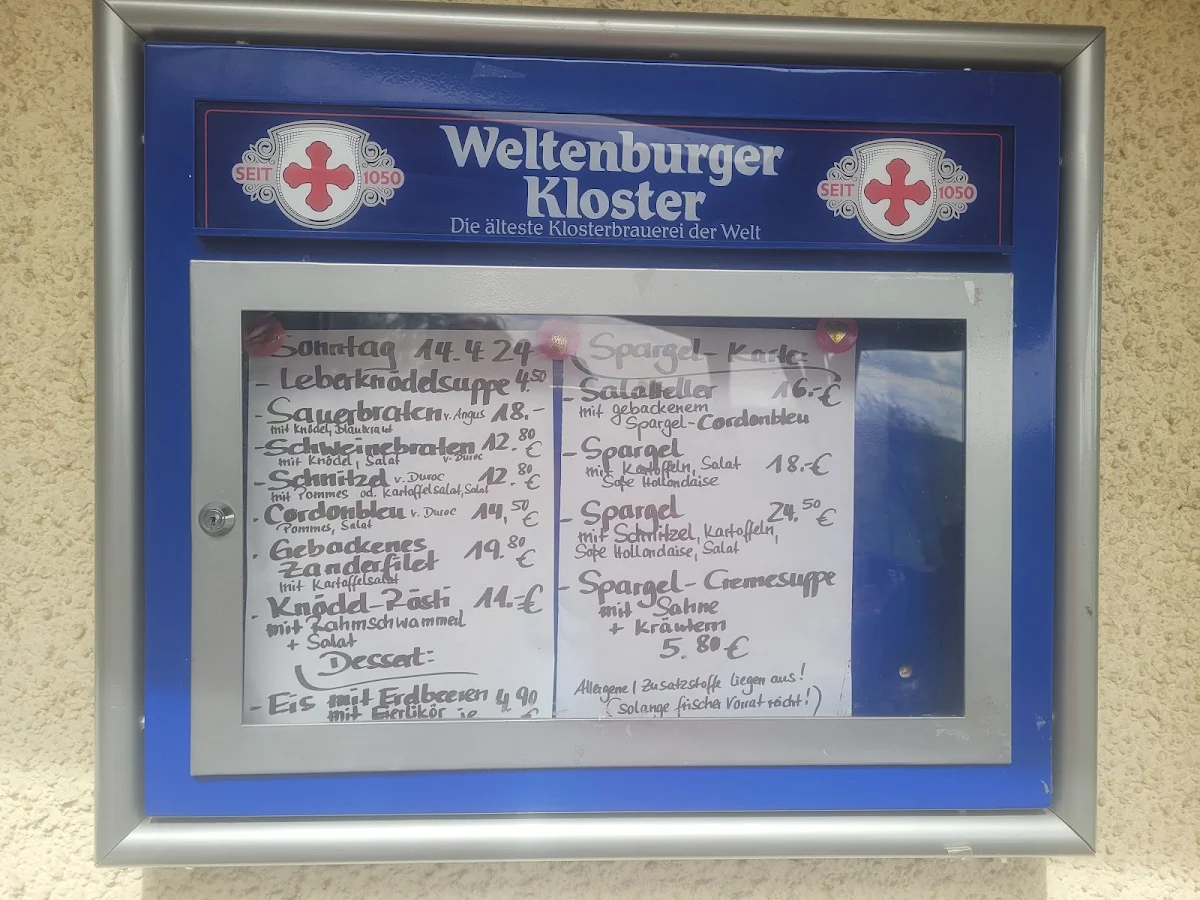 SEIT 1050
Weltenburger
Kloster
Die älteste Klosterbrauerei der Welt
SEIT 1050
Sonntag 14.4.24
- Leberknödelsuppe 4.50
- Sauerbraten v. Angus 18.-
mit Knödel, Blaukraut
- Schweinebraten 12.80 €
mit Knödel, Salat v. Duroc
- Schnitzel v. Duroc 12.80 €
mit Pommes od. Kartoffelsalat, Salat
. Cordonbleu v. Duroc 14,50 €
Pommes, Salat
. Gebackenes
Zanderfilet 19.80 €
mit Kartoffelsalat
. Knödel-Rösti 11.-€
mit Rahmschwammerl
+ Salat
Dessert:
- Eis mit Erdbeeren 4,90
mit Eierlikör je €
Spargel-Karte:
- Salatteller 16.-€
mit gebackenem
Spargel-Cordonbleu
- Spargel
mit Kartoffeln, Salat 18.-€
Soße Hollondaise
- Spargel 24.50 €
mit Schnitzel, Kartoffeln,
Soße Hollondaise, Salat
- Spargel-Cremesuppe
mit Sahne
+ Kräutern
5.80 €
Allergene / Zusatzstoffe liegen aus!
(solange frischer Vorrat reicht!)